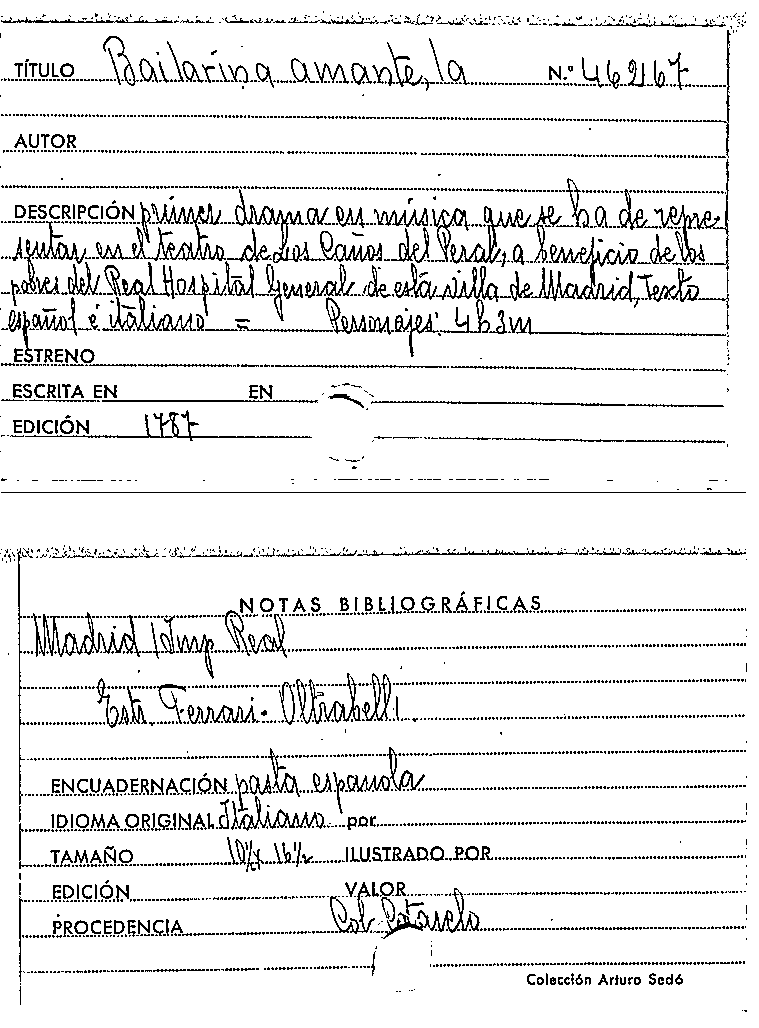 TÍTULO Bailarina amante, la N.º 46267
AUTOR
DESCRIPCIÓN primer drama en música que se ha de repre-
sentar en el teatro de los Caños del Peral, a beneficio de los
pobres del Real Hospital General de esta villa de Madrid, Texto
español é italiano = Personajes: 4h3m
ESTRENO
ESCRITA EN EN
EDICIÓN 1787
NOTAS BIBLIOGRÁFICAS
Madrid / Imp Real
Estr. Ferrari - Oltrabelli
ENCUADERNACIÓN pasta española
IDIOMA ORIGINAL Italiano por
TAMAÑO 10½ x 16½ ILUSTRADO POR
EDICIÓN VALOR
PROCEDENCIA Col. Cotarelo
Colección Arturo Sedó